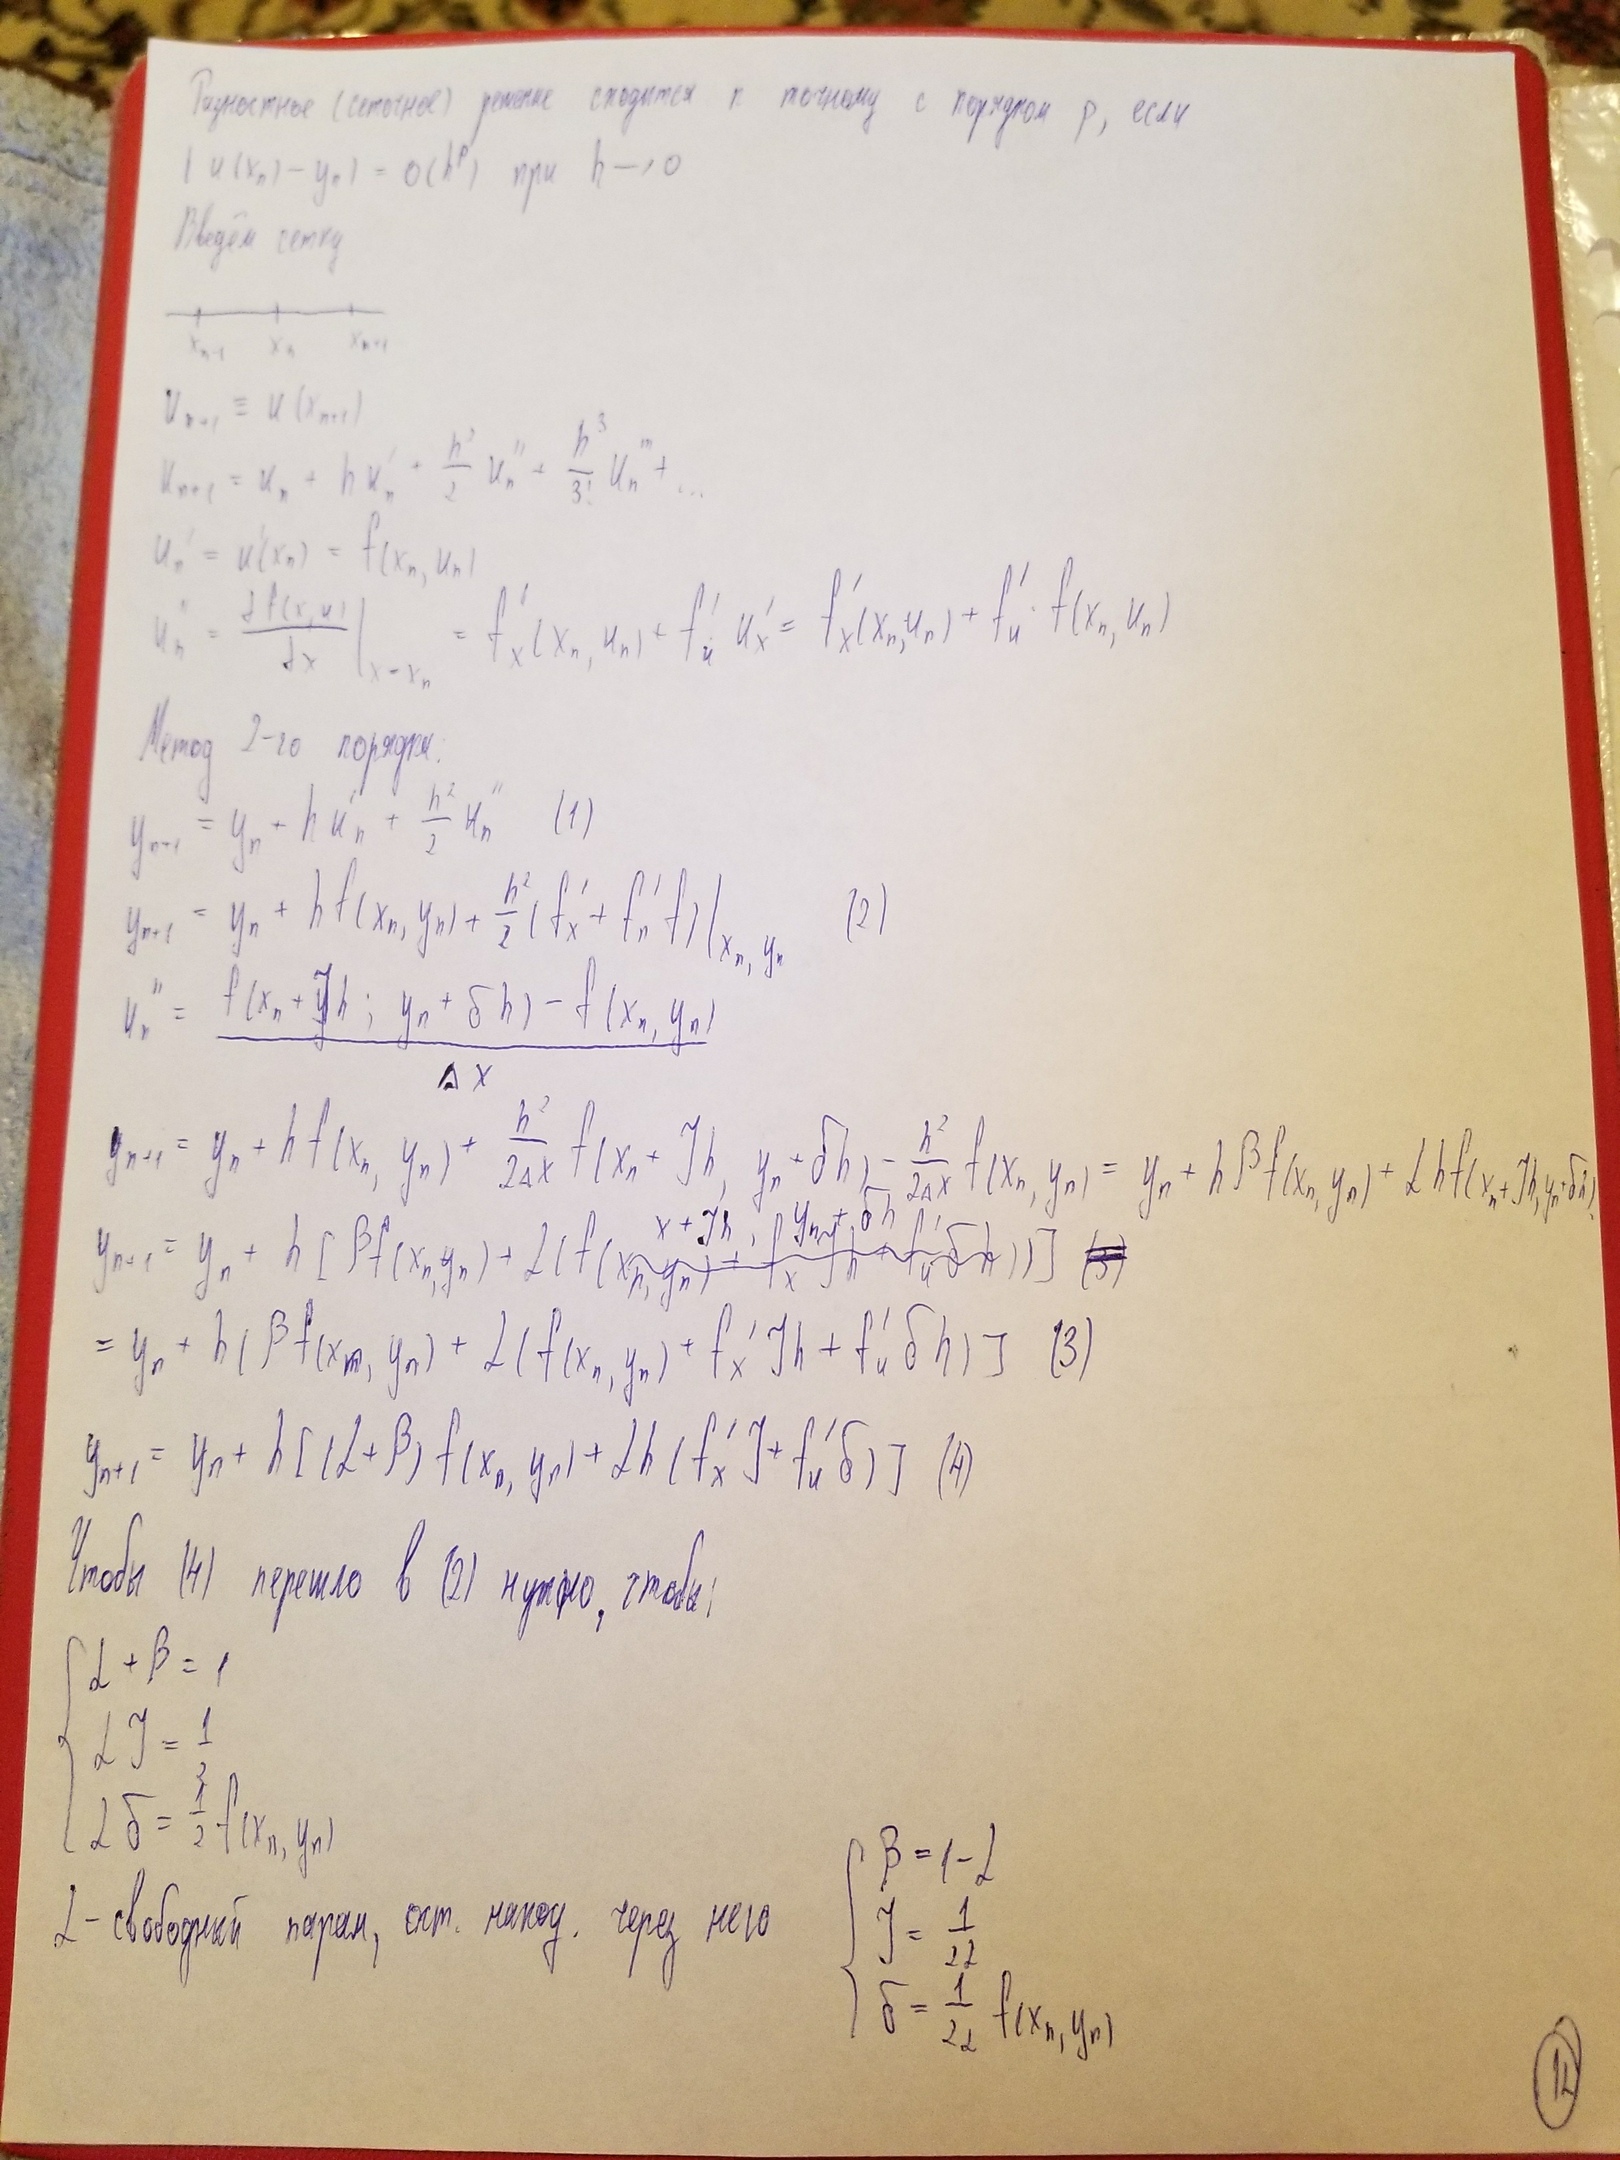 Разностное (сеточное) решение сходится к точному с порядком p, если
|u(xₙ) - yₙ| = O(hᵖ) при h → 0
Введём сетку
xₙ₋₁ xₙ xₙ₊₁
uₙ₊₁ ≡ u(xₙ₊₁)
uₙ₊₁ = uₙ + hu'ₙ + h²/2 u''ₙ + h³/3! u'''ₙ + ...
u'ₙ = u'(xₙ) = f(xₙ, uₙ)
u''ₙ = df(x,u)/dx |ₓ₌ₓₙ = f'ₓ(xₙ, uₙ) + f'ᵤ u'ₓ = f'ₓ(xₙ, uₙ) + f'ᵤ · f(xₙ, uₙ)
Метод 2-го порядка:
yₙ₊₁ = yₙ + hu'ₙ + h²/2 u''ₙ (1)
yₙ₊₁ = yₙ + hf(xₙ, yₙ) + h²/2 (f'ₓ + f'ᵤ f)|xₙ, yₙ (2)
u''ₙ = f(xₙ + γh; yₙ + δh) - f(xₙ, yₙ)
Δx
yₙ₊₁ = yₙ + hf(xₙ, yₙ) + h²/2Δx f(xₙ + γh, yₙ + δh) - h²/2Δx f(xₙ, yₙ) = yₙ + hβf(xₙ, yₙ) + αhf(xₙ + γh, yₙ + δh)
x + γh, yₙ + δh
yₙ₊₁ = yₙ + h[βf(xₙ, yₙ) + α(f(xₙ, yₙ) + f'ₓ γh + f'ᵤ δh))] (3)
= yₙ + h[βf(xₙ, yₙ) + α(f(xₙ, yₙ) + f'ₓ γh + f'ᵤ δh)] (3)
yₙ₊₁ = yₙ + h[(α + β) f(xₙ, yₙ) + αh(f'ₓ γ + f'ᵤ δ)] (4)
Чтобы (4) перешло в (2) нужно, чтобы:
α + β = 1
αγ = 1/2
αδ = 1/2 f(xₙ, yₙ)
α - свободный парам, ост. наход. через него
β = 1 - α
γ = 1/2α
δ = 1/2α f(xₙ, yₙ)
12